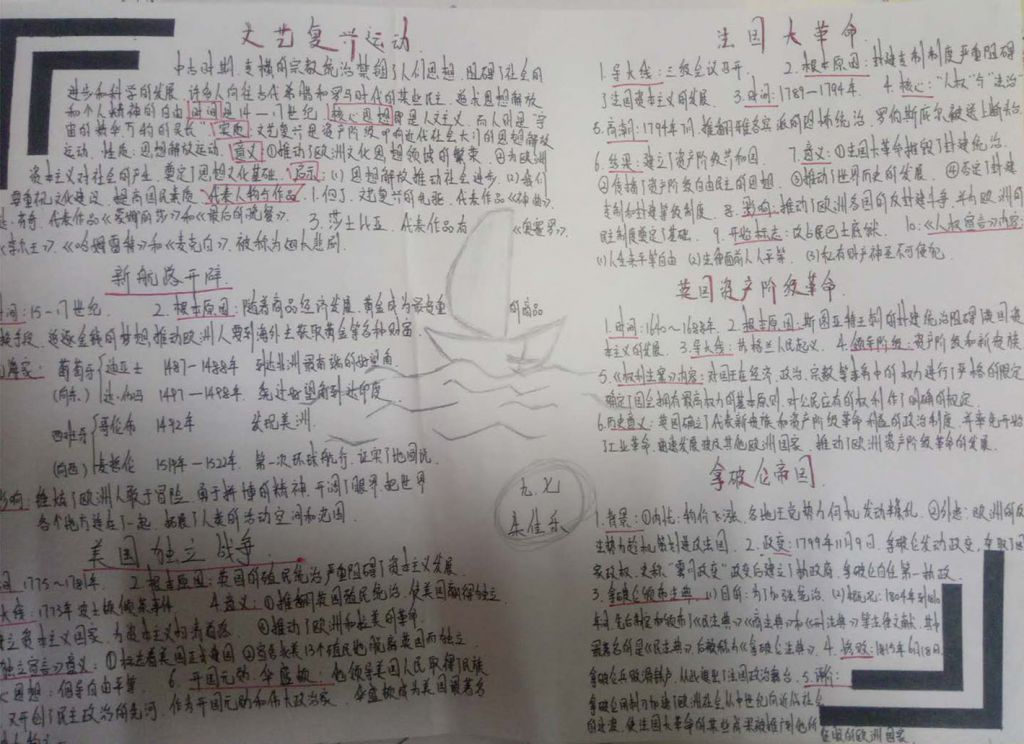 文艺复兴运动
中古时期,支横的宗教统治禁锢了人们思想,阻碍了社会的
进步和科学的发展 许多人向往古代希腊和罗马时代的某些民主 追求思想解放
和个人精神的自由 时间:是14—17世纪 核心思想:即是人文主义,而人则是宇
宙的精华万物的灵长 实质:文艺复兴是资产阶级
运动 性质:思想解放运动 意义:①推动了欧洲文化思想领域的繁荣 ②为欧洲
资本主义社会的产生,奠定了思想文化基础 启示:(1)思想解放推动社会进步 (2)我们
要重视文化建设,提高国民素质 代表人物与作品:1.但丁,文艺复兴的先驱,代表作品《神曲》
代表作品《蒙娜丽莎》和《最后的晚餐》 3.莎士比亚 代表作品有 《奥赛罗》
《李尔王》、《哈姆雷特》和《麦克白》,被称为四大悲剧
新航路开辟
时间:15—17世纪 2.根本原因:随着商品经济发展,黄金成为最贵重 的商品
追逐金钱的梦想,推动欧洲人要到海外去获取黄金等各种财富
葡萄牙 迪亚士 1487—1488年 到达非洲最南端的好望角
(向东) 达·伽马 1497—1498年 绕过好望角到达印度
西班牙 哥伦布 1492年 发现美洲
(向西) 麦哲伦 1519年—1522年 第一次环球航行,证实了地圆说
影响:锻炼了欧洲人敢于冒险,勇于拼搏的精神,开阔了眼界,把世界
各个地方连在了一起,拓展了人类的活动空间和范围
九.七
栾佳乐
美国独立战争
时间 1775~1781年 2.根本原因:英国的殖民统治严重阻碍了资本主义发展
1773年波士顿倾茶事件 4.意义:①推翻英国殖民统治,使美国赢得独立
资本主义国家,为资本主义扫清道路 ②推动了欧洲和拉美的革命
独立宣言》意义:①标志着美国正式建国 ②宣告北美13个殖民地脱离英国而独立
思想:倡导自由平等 6.开国元勋:华盛顿:他领导美国人民取得了民族
又开创了民主政治的先河,作为开国元勋和伟大政治家,华盛顿成为美国最著名
法国大革命
1.导火线:三级会议召开 2.根本原因:封建专制制度严重阻碍
了法国资本主义的发展 3.时间:1789—1794年 4.核心:“人权”与“法治”
5.高潮:1794年7月,推翻雅各宾派的恐怖统治,罗伯斯庇尔被送上断头台
6.结果:建立了资产阶级共和国 7.意义:①法国大革命摧毁了封建统治
②传播了资产阶级自由民主的思想 ③推动了世界历史的发展 ④否定了封建
专制和封建等级制度 8.影响:推动了欧洲各国的反封建斗争,并为欧洲的
民主制度奠定了基础 9.开始标志:攻占巴士底狱 10:《人权宣言》内容:
(1)人生来平等自由 (2)法律面前人人平等 (3)私有财产神圣不可侵犯
英国资产阶级革命
1.时间:1640~1688年 2.根本原因:斯图亚特王朝的封建统治阻碍英国资
本主义的发展 3.导火线:苏格兰人民起义 4.领导阶级:资产阶级和新贵族
5.《权利法案》内容:对国王在经济、政治、宗教等事务中的权力进行了严格的限定
确定了国会拥有最高权力的基本原则,对公民应有的权利作了明确的规定
6.历史意义:英国确立了代表新贵族和资产阶级革命利益的政治制度,并率先开始
了工业革命,迅速发展成其他欧洲国家,推动了欧洲资产阶级革命的发展
拿破仑帝国
1.背景:①内忧:物价飞涨,各地王党势力伺机发动叛乱 ②外患:欧洲的反
法势力趁机策划进攻法国 2.政变:1799年11月9日,拿破仑发动政变,夺取了国
家政权,史称“雾月政变”政变后建立了执政府,拿破仑自任第一执政
3.拿破仑颁布法典:(1)目的:为了加强统治 (2)概况:1804年到1810
年间先后制定和颁布《民法典》《商法典》和《刑法典》等法律文献,其中
最著名的是《民法典》,后被称为《拿破仑法典》 4.惨败:1815年6月18日
拿破仑兵败滑铁卢,从此退出了法国政治舞台 5.评价:
拿破仑用剑加速了欧洲社会从中世纪向近代社会
的过渡,使法国大革命的某些成果被推广到他所 征服的欧洲国家